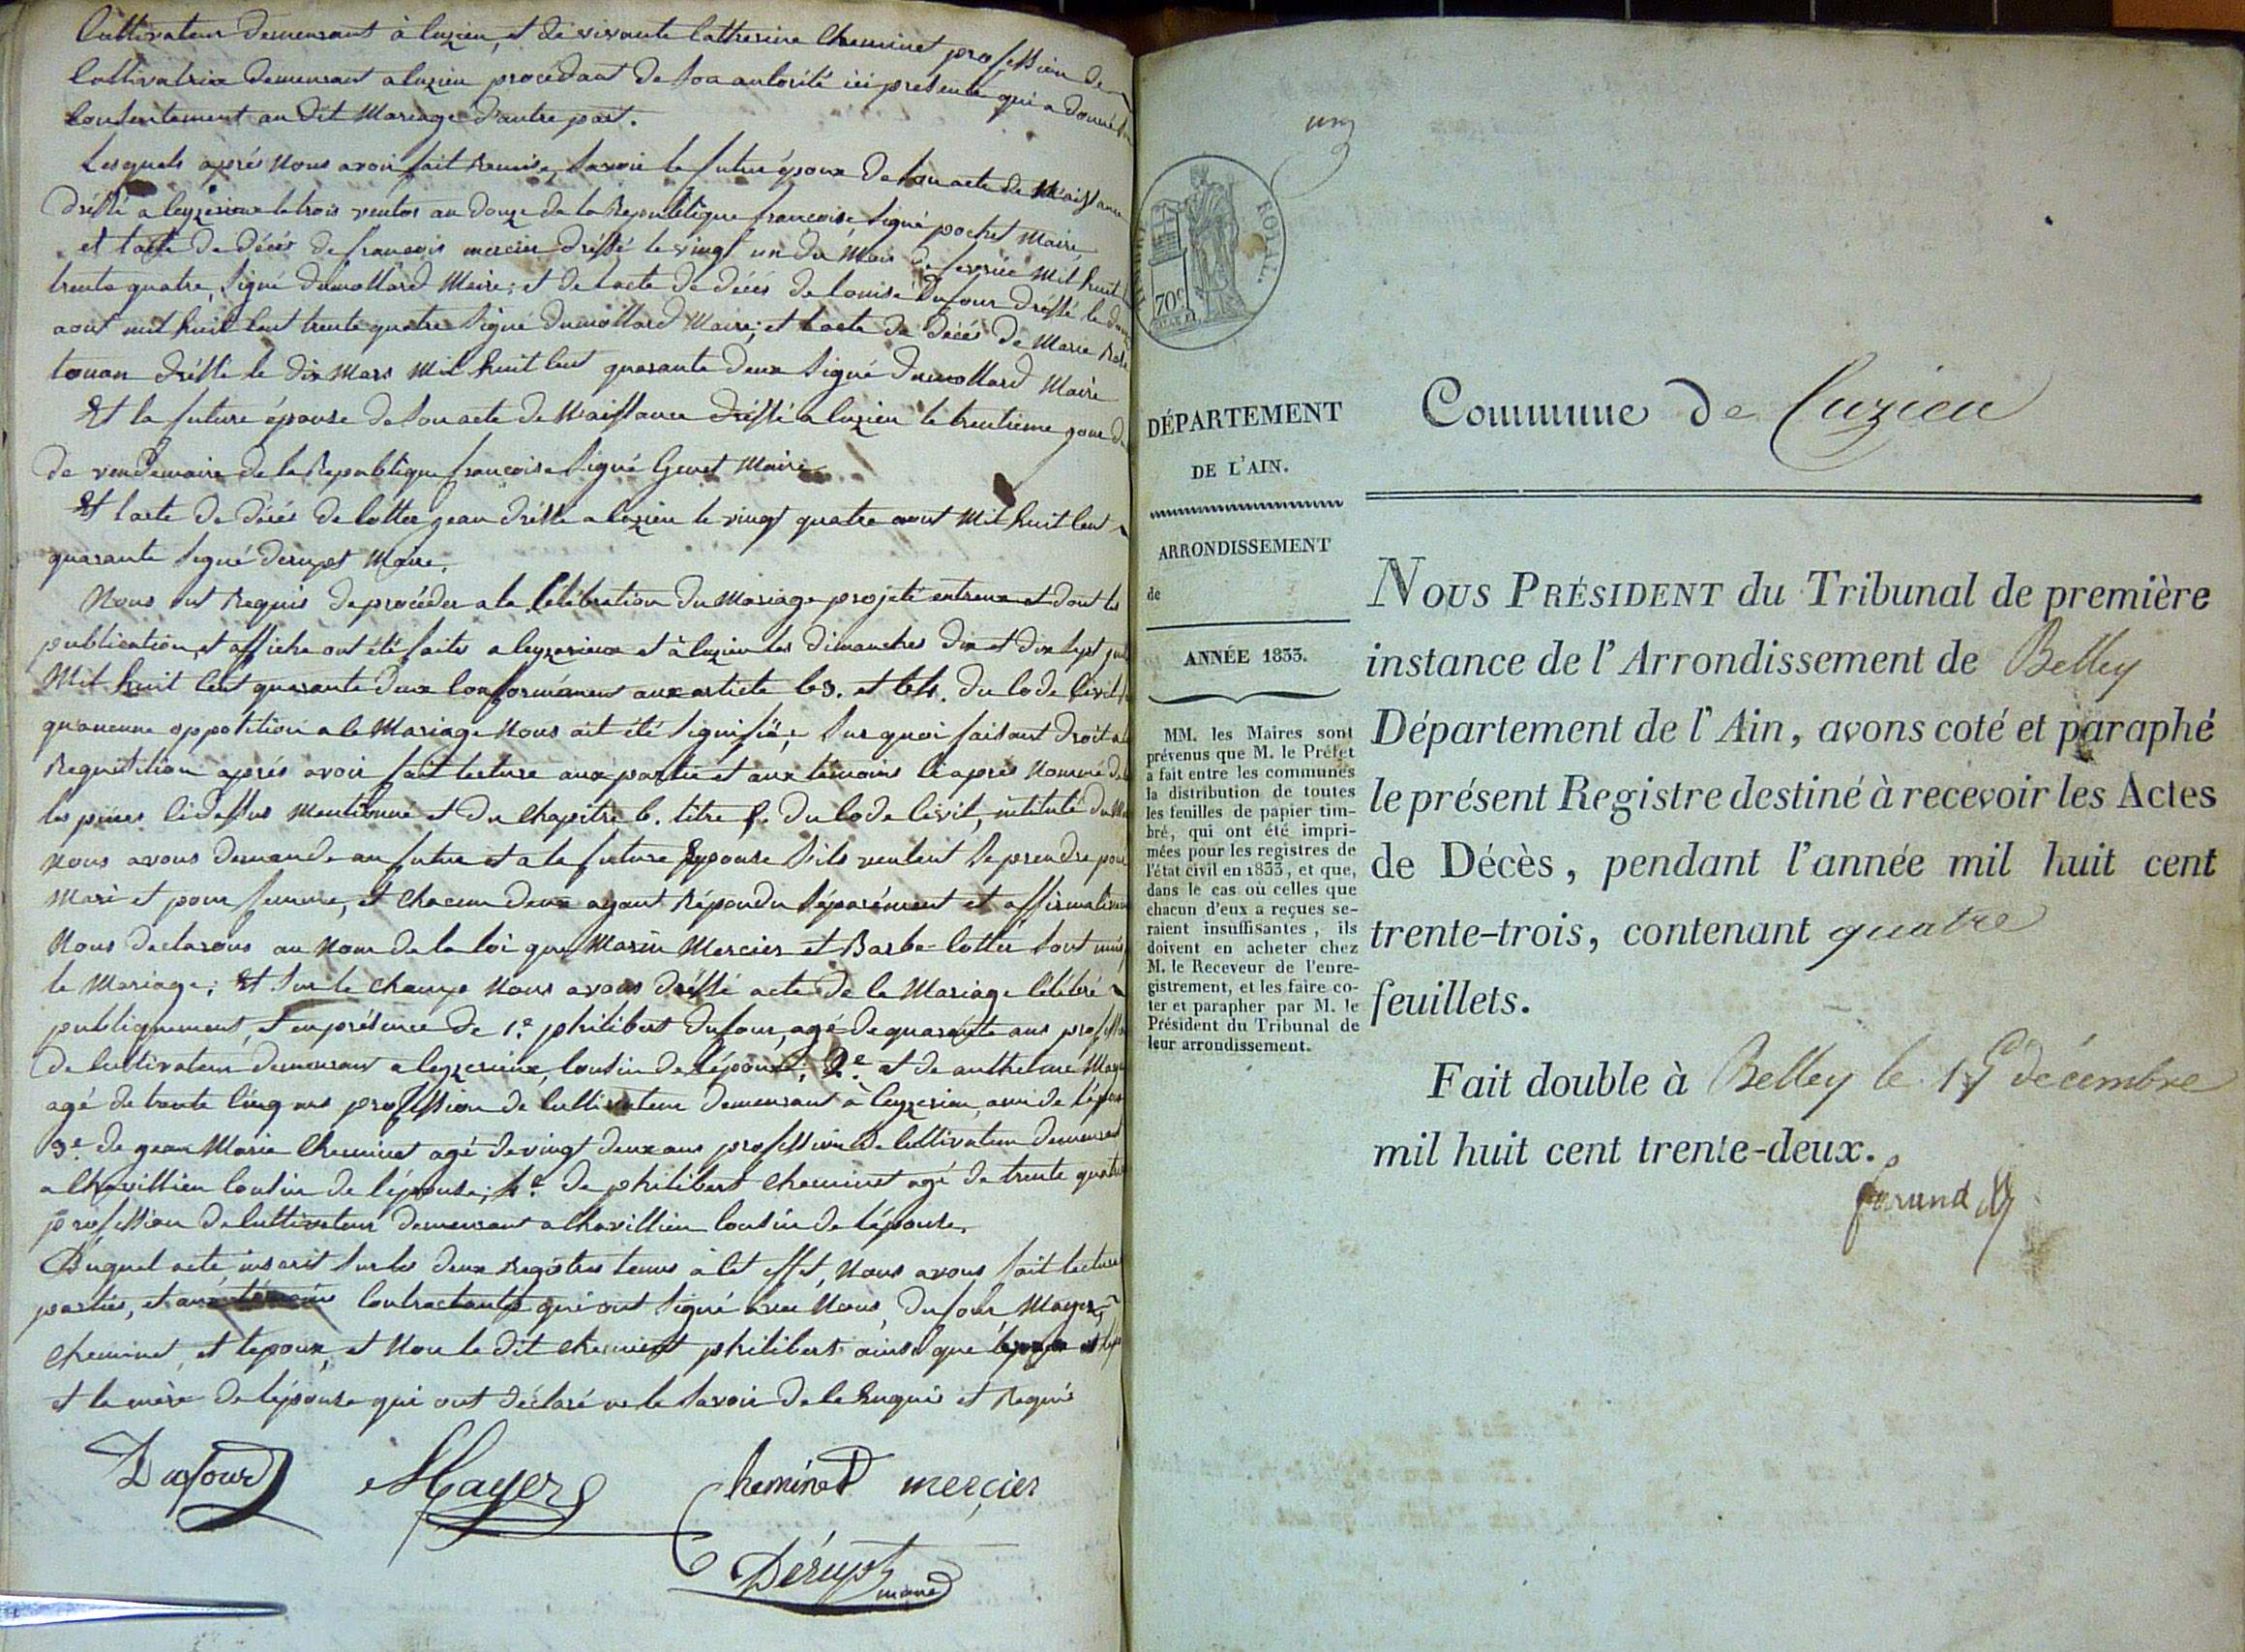 Cultivateur demeurant à Cuzieu, et de vivante Catherine Cheminet profession de
Cultivatrice demeurant a Cuzieu procédant de son autorité ici présente qui a donné
Consentement au dit Mariage d'autre part.
Lesquels après Nous avoir fait Remise, Savoir le futur époux de son acte de Naissance
dréssé a Ceyzerieux le trois ventos an douze de la Republique françoise Signé pochet Maire,
et l'acte de décés de françois mercier dréssé le vingt un du Mois de fevrié Mil huit
trente quatre, Signé Dumollard Maire; et de l'acte de décés de Louise Dufour dréssé le
aout mil huit Cent trente quatre Signé dumollard Maire; et l'acte de décés de Marie
touan dréssé le dix Mars Mil huit Cent quarante deux Signé Dumollard Maire
Et la future épouse de Son acte de Naissance dréssé a Cuzieu le trentieme jour
de vendemaire de la Republique françoise Signé Genet Maire
Et l'acte de décés de Cotter jean dréssé a Cuzieu le vingt quatre aout Mil huit Cent
quarante Signé Derupt Maire.
Nous ont Requis de procéder a la Célébration du Mariage projeté entreux et dont les
publication, et affiche ont été faite a Ceyzerieux et à Cuzieu les dimanches dix et dix Sept
Mil huit Cent quarante deux Conformément aux article 63. et 64. du Code Civil
qu'aucune oppotition a le Mariage Nous ait été Signifiée; Sur quoi faisant droit a
Requisition après avoir fait lecture aux partie et aux témoins Ci après Nommé
les pièces Ci dessus Mentionné et du Chapitre 6. titre 5. du Code Civil, intitulé du
Nous avons demandé au futur et a la future Epouse S'ils veulent Se prendre pour
Mari et pour femme, et Chacun deux ayant Répondu Séparément et affirmativement
Nous declarons au Nom de la loi que Marin Mercier et Barbe Cotter Sont unis
le Mariage; Et Sur le Champ Nous avons dréssé acte de le Mariage Célébré
publiquement, et en présence de 1.e philibert Dufour, agé de quarante ans
de Cultivateur demeurant a Ceyzerieux, Cousin de l'époux; 2.e et de anthelme Mayer
agé de trente Cinq ans profession de Cultivateur demeurant à Ceyzerieu, ami de l'époux
3.e de jean Marie Cheminet agé de vingt deux ans profession de Cultivateur demeurant
a Chavillieu Cousin de l'épouse; 4.e de philibert Cheminet agé de trente quatre
profession de Cultivateur demeurant a Chavillieu Cousin de l'épouse.
Duquel acte inscrit Sur les deux Registres tenus à cet effet, Nous avons fait lecture
parties, et aux témoins Contractants qui ont Signé avec Nous, Dufour, Mayer,
Cheminet, et l'epoux, et Non le dit Cheminet philibert ainsi que
et la mère de l'épouse qui ont déclaré ne le Savoir de le Enquis et Requis
Dufour Mayer Cheminet mercier
Dérupt maire
un
ROYAL.
70c
DÉPARTEMENT
DE L'AIN.
ARRONDISSEMENT
de
ANNÉE 1833.
MM. les Maires sont
prévenus que M. le Préfet
a fait entre les communes
la distribution de toutes
les feuilles de papier tim-
bré, qui ont été impri-
mées pour les registres de
l'état civil en 1833, et que,
dans le cas où celles que
chacun d'eux a reçues se-
raient insuffisantes, ils
doivent en acheter chez
M. le Receveur de l'enre-
gistrement, et les faire co-
ter et parapher par M. le
Président du Tribunal de
leur arrondissement.
Commune de Cuzieu
NOUS PRÉSIDENT du Tribunal de première
instance de l'Arrondissement de Belley
Département de l'Ain, avons coté et paraphé
le présent Registre destiné à recevoir les Actes
de Décès, pendant l'année mil huit cent
trente-trois, contenant quatre
feuillets.
Fait double à Belley le 15 décembre
mil huit cent trente-deux.